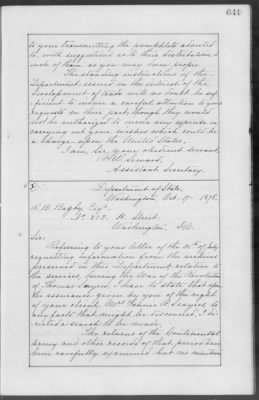 641
to your transmitting the pamphlets adverted
to, with suggestions as to their distribution
such of them as you may deem proper.
The standing instructions of the
Department issued in the interest of the
development of trade will no doubt be suf-
ficient to ensure a careful attention to your
requests on their part, though they would
not be authorized to incur any expense in
carrying out your wishes which could be
a charge upon the United States.
I am, Sir, your obedient servant,
F. W. Seward,
Assistant Secretary.
Department of State,
Washington, Oct. 1878.
R. B. Bagby Esqr
No. H. Street.
Washington, D.C.
Sir:
Referring to your letter of the of July
requesting information from the archives
preserved in this Department relative to
the services, during the War of the Revolution
of Thomas Sawyers, I have to state that upon
the assurance given by you of the right
of your client, Mrs. Fannie Sawyers, to
any facts that might be discovered, I di-
rected a search to be made.
The returns of the Continental
Army and other records of that period have
been carefully examined but no mention